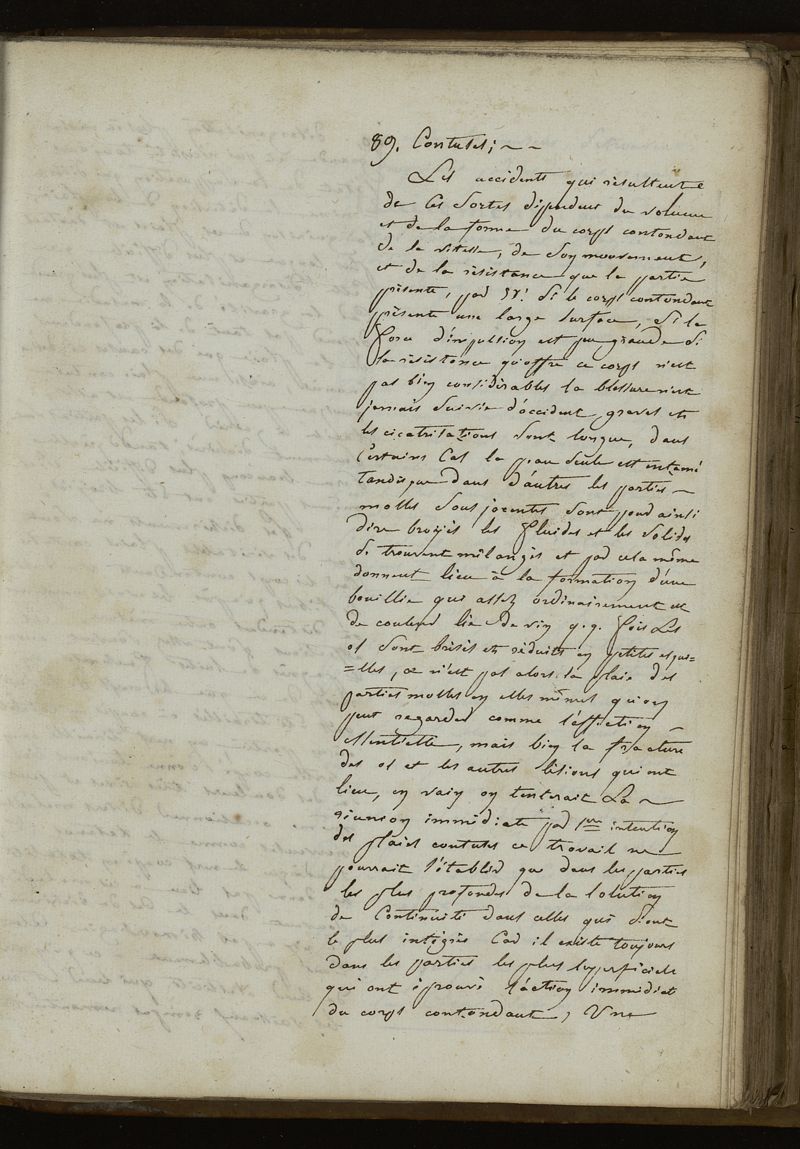 89. Contuses; ~ ~
Les accidents qui resultent
de Ces Sortes dependent du volume
et de la forme du corps contondant
de la vitesse, de Son mouvement,
et de la résistance que la partie
présente, par Si le corps contondant
présente une large Surface, Si la
force d'impulsion est peu grande Si
la résistance qu'offre ce corps n'est
pas bien considérables la blessure n'est
jamais Suivie d'accident graves et
les cicatrisations Sont longue, dans
Certains Cas la peau Seule est entamé
tandisque dans d'autres les parties ~
molles Sous jacentes Sont pour ainsi
dire broyés les fluides et les Solides
Se trouvent mélangés et par cela même
donnent lieu à la formation d'une
bouillie qui assez ordinairement est
de couleur lie de vin q.q. fois Les
os Sont brisés et réduits en petites esqui=
=lles, ce n'est pas alors la plaie des
parties molles en elles mêmes qu'on
peut regarder comme l'affection ~
essentielle, mais bien la fracture
des os et les autres lésions qui ont
lieu, en vain on tenterait La ~
réunion immédiate par 1ère intention
des plaies contuses ce travail ne
pourrait s'établir que dans les parties
les plus profondes de la Solution
de Continuité dans celles qui Sont
le plus intègres Car il existe toujours
dans les parties les plus Superficiels
qui ont éprouvé l'action immédiat
du corps contondant, Une